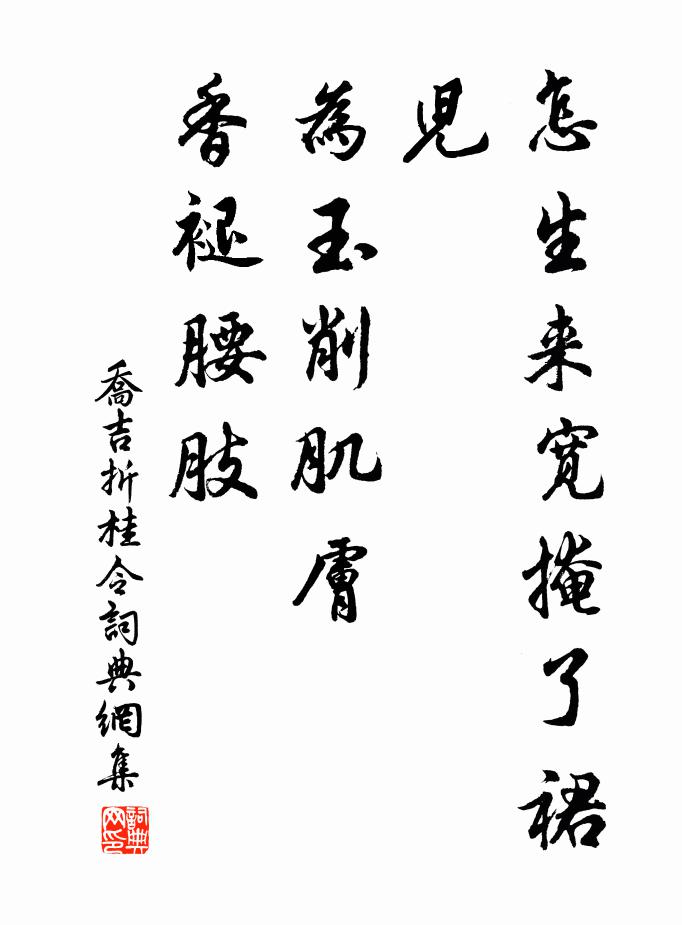 怎生来宽掩了裙
児
為玉削肌膚
香褪腰肢
喬吉折桂令詞典網集
詞典
网印